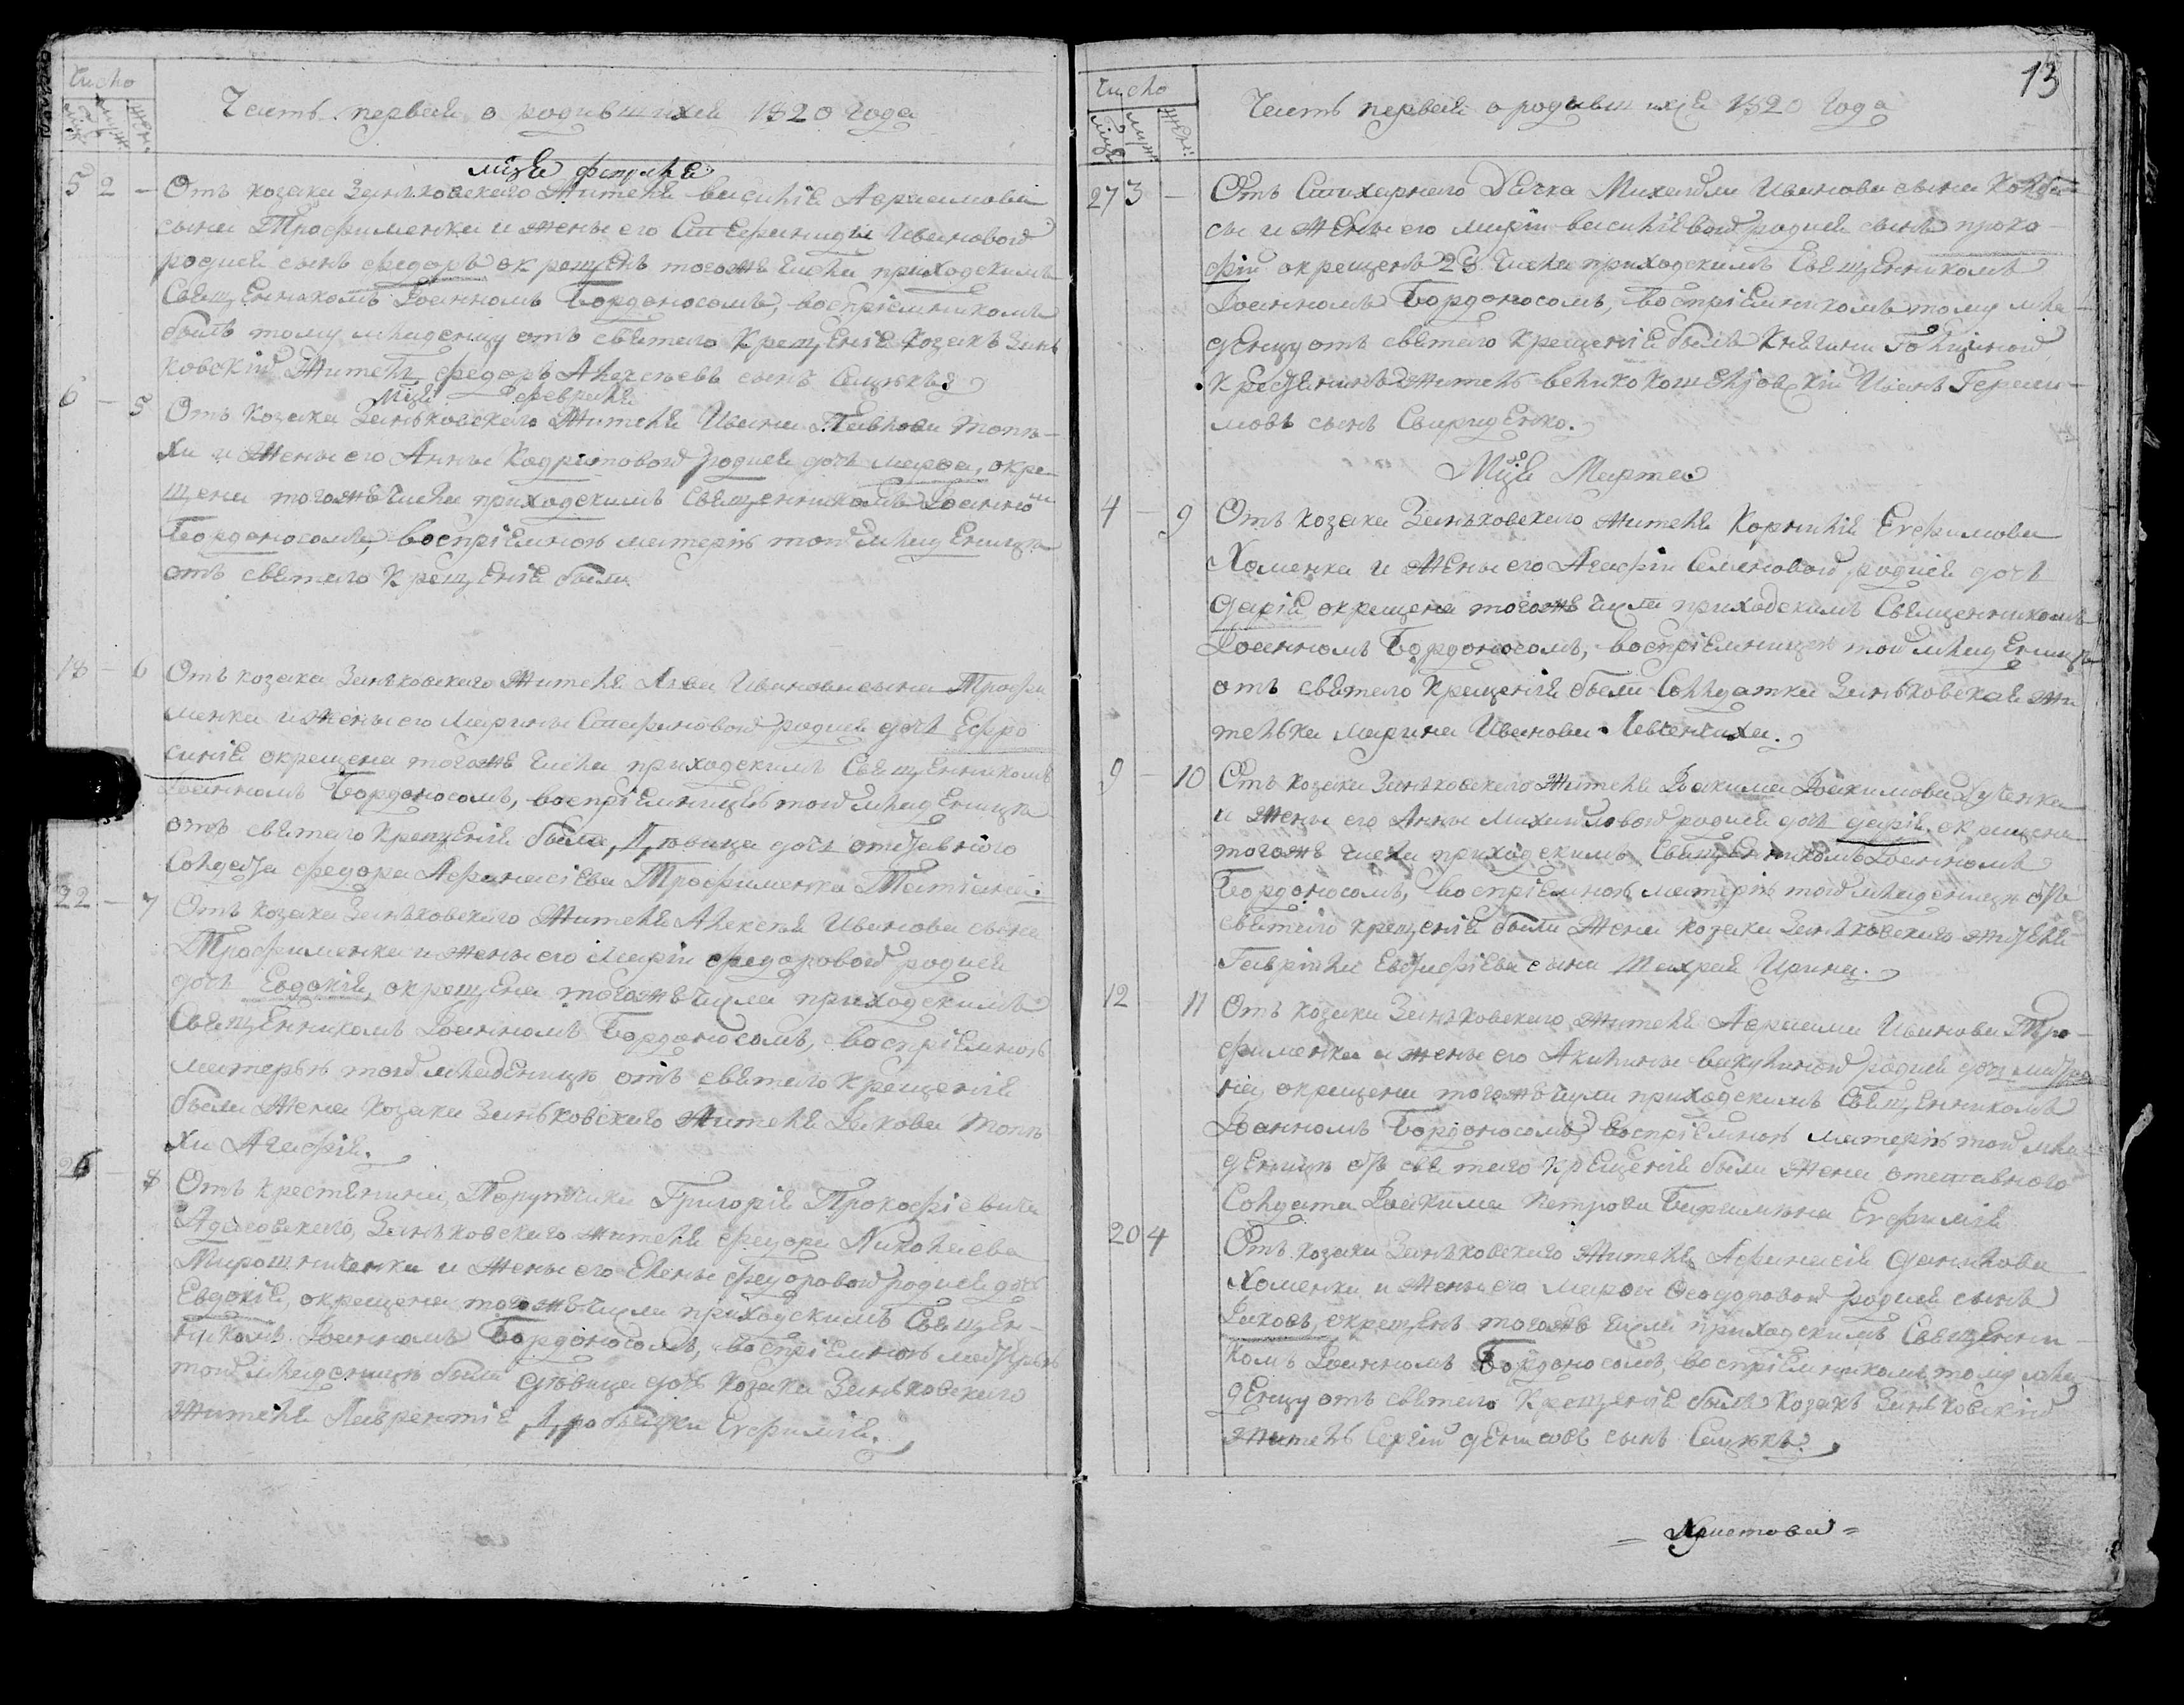 Число
Часть первая о родившихся 1820 года
мца февраля
5 2 — Отъ козака Зѣньковскаго жителя василія Авраамова
сына Трофименка и жены его Стефаниды Ивановой
родися сынъ федоръ окрещенъ тогожъ числа приходскимъ
Священникомъ Іоанномъ Бордоносомъ, воспріемникомъ
былъ тому младенцу отъ святаго крещенія козакъ Зень
ковскій Житель федоръ Алексѣевъ сынъ
мца февраля
6 — 5 Отъ козака Зеньковскаго Жителя Ивана Павлова топч
хи и Жены его Анны родися дочь марфа, окре
щена тогожъ числа приходскимъ Священникомъ Іоанномъ
Бордоносомъ, воспріемною матерію той младеницѣ
отъ святаго Крещенія была
18 — 6 Отъ козака Зеньковскаго Жителя Ивановна сына Трофи
менка и Жены его Марины Стефановой родися дочь Ефро
синія окрещена тогожъ числа приходскимъ Священникомъ
Іоанномъ Бордоносомъ, воспріемницею той младеницѣ
отъ святаго Крещенія была, Дѣвица дочь отставного
Солдата федора Афанасіева Трофименка Татіана.
22 — 7 Отъ козака Зеньковскаго Жителя Алексѣя Иванова сына
Трофименка и жены его Маріи федоровой родися
дочь Евдокія, окрещена тогожъ числа приходскимъ
Священникомъ Іоанномъ Бордоносомъ, воспріемною
матерью той младеницѣ отъ святаго крещенія
была Жена козака Зеньковского Жителя Іакова топч
хи Агафія.
26 — 8 Отъ крестянина, Порутчика Григорія Прокофіевича
Зеньковскаго жителя федора Николаева
Мирошниченка и Жены его Елены федоровой родися дочь
Евдокія, окрещена тогожъ числа приходскимъ Священ
никомъ Іоанномъ Бордоносомъ, воспріемною матерью
той младеницѣ была Дѣвица дочь козака Зеньковского
Жителя Лаврентія Евфимія.
13
Число
Часть первая о родившихся 1820 года
27 3 — Отъ Стихарнаго Дячка Михаила Иванова сына Колба
сы и Жены его маріи василіевой родися сынъ проко
фій окрещенъ 28 числа приходскимъ Священникомъ
Іоанномъ Бордоносомъ, воспріемникомъ тому мла
денцу отъ святаго Крещенія былъ Княгини Голициной
крестянинъ житель Иванъ Гераси
мовъ сынъ Свириденко.
Мца Марта
4 — 9 Отъ козака Зеньковскаго жителя Корнилія Евфимова
Хоменка и Жены его Агафіи Семеновой родися дочь
Дарія окрещена тогожъ числа приходскимъ Священникомъ
Іоанномъ Бордоносомъ, воспріемницею той младеницѣ
отъ святаго Крещенія была Солдатка Зеньковская жи
телька Марина Иванова
9 — 10 Отъ козака Зеньковского Жителя Іоакима Іоакимова
и Жены его Анны Михайловой родися дочь дарія окрещена
тогожъ числа приходскимъ Священникомъ Іоанномъ
Бордоносомъ, воспріемною матерію той младеницѣ отъ
святаго крещенія была Жена козака Зеньковского жителя
Гавріила сына Ирина.
12 11 Отъ козака Зеньковского жителя Авраама Иванова Тро
фименка и жены его Акилины вакулиной родися дочь матро
на, окрещена тогожъ числа приходскимъ Священникомъ
Іоанномъ Бордоносомъ воспріемною матерію той мла
деницѣ отъ святаго крещенія была Жена отставного
Солдата Іоакима Петрова Евфимія
20 4 Отъ козака Зеньковского Жителя Афанасія Данилова
Хоменка и жены его Марфы Феодоровой родися сынъ
Іаковъ, окрещенъ тогожъ числа приходскимъ Священни
комъ Іоанномъ Бордоносомъ, воспріемникомъ тому мла
денцу отъ святаго Крещенія былъ Козакъ Зеньковскій
житель Сергій Денисовъ сынъ
= Христова =